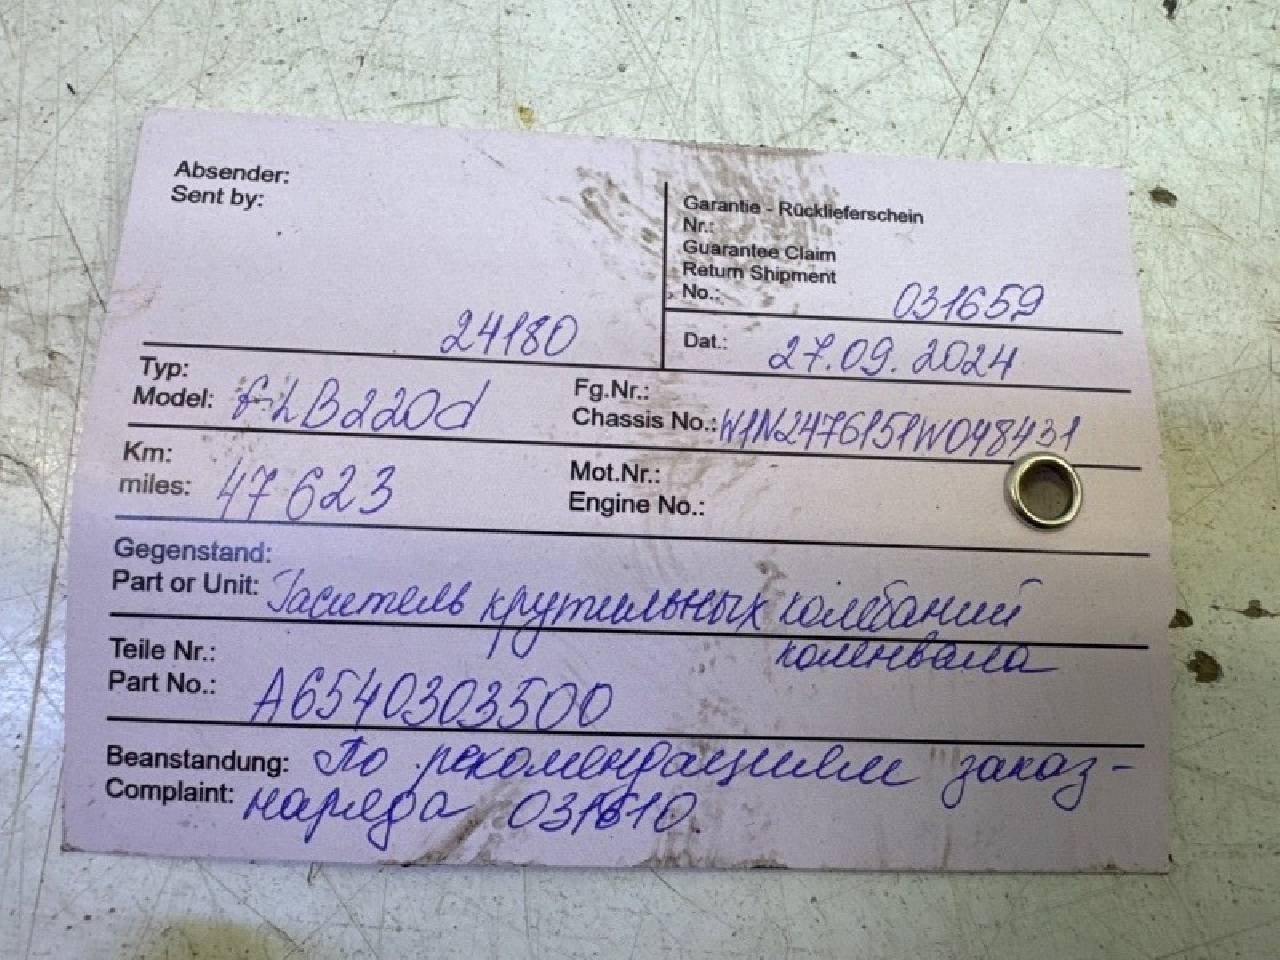 Absender:
Sent by:
24180
Garantie - Rücklieferschein
Nr.:
Guarantee Claim
Return Shipment
No.: 031659
Dat.: 27.09.2024
Typ:
Model: GLB220d
Fg.Nr.:
Chassis No.: W1N2476151W048431
Km:
miles: 47 623
Mot.Nr.:
Engine No.:
Gegenstand:
Part or Unit: Гаситель крутильных колебаний
коленвала
Teile Nr.:
Part No.: A6540303500
Beanstandung: По рекомендациям заказ-
Complaint: наряда 031610.